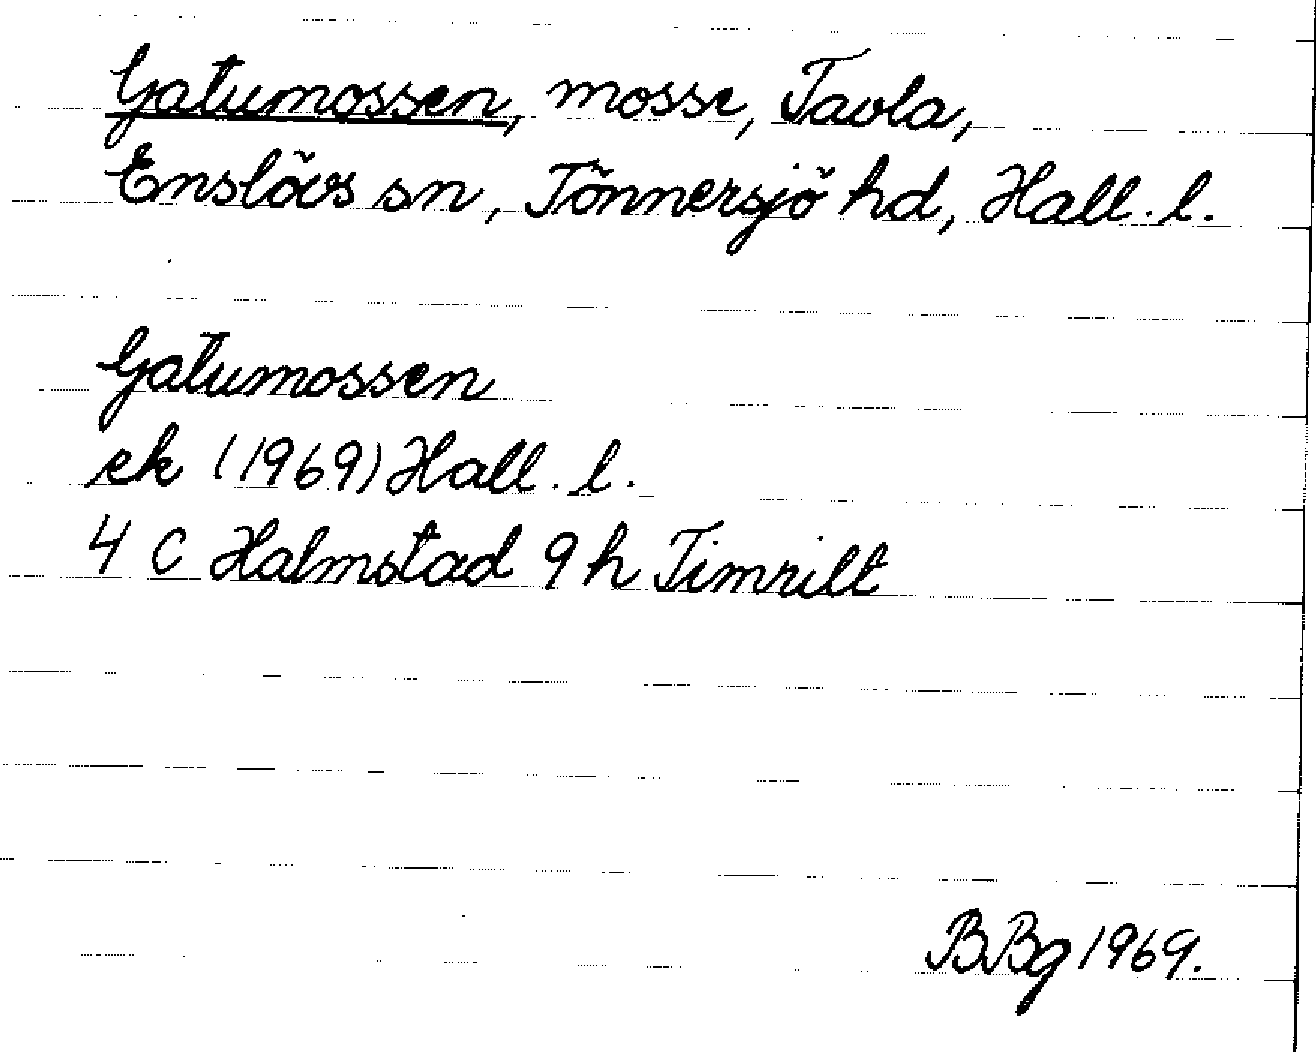 Gatumossen, mosse, Tavla,
Enslövs sn, Tönnersjö hd, Hall. l.
Gatumossen
ek (1969) Hall. l.
4 C Halmstad 9 h Timrilt
BBg 1969.